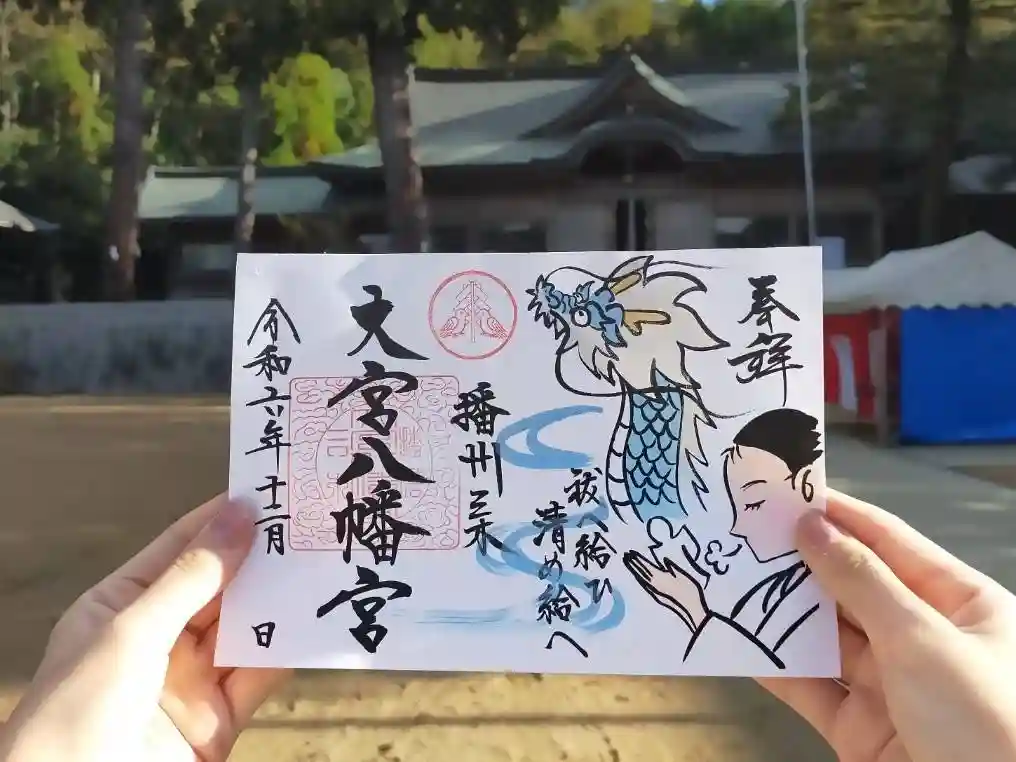 奉拝
祓へ給ひ
清め給へ
播州三木
大宮八幡宮
令和六年十二月 日